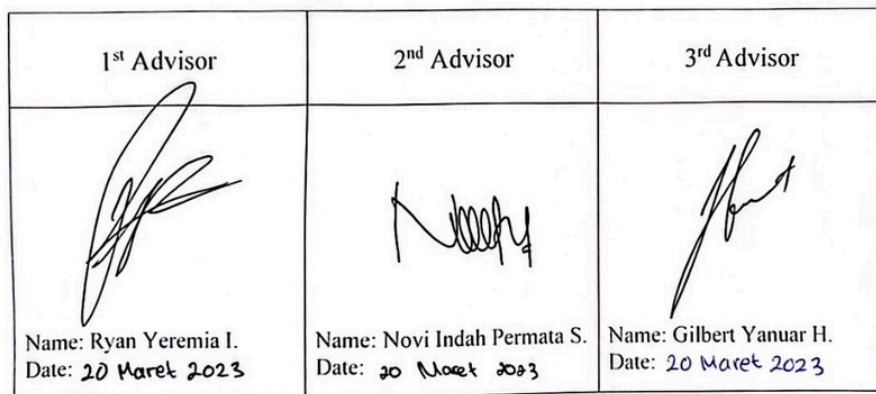 1st Advisor
2nd Advisor
3rd Advisor
Name: Ryan Yeremia I.
Date: 20 Maret 2023
Name: Novi Indah Permata S.
Date: 20 Maret 2023
Name: Gilbert Yanuar H.
Date: 20 Maret 2023